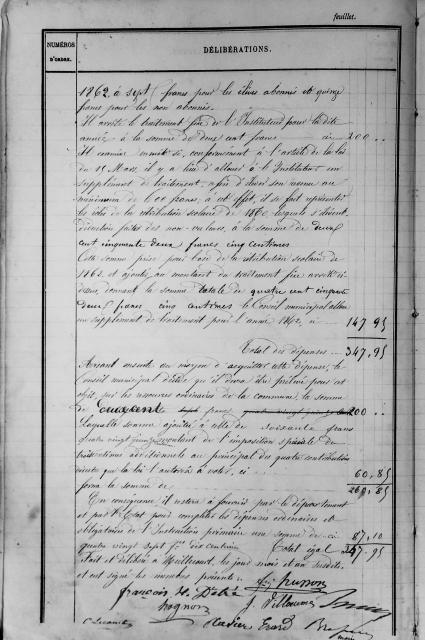 feuillet.
NUMÉROS D'ORDRE.
DÉLIBÉRATIONS.
1862 à sept francs pour les élèves abonnés et quinze
francs pour les non abonnés.
Il arrête le traitement fixe de l'Instituteur pour la dite
année à la somme de deux cent francs ci 200 ..
Il examine ensuite si, conformément à l'article de la loi
du 15 Mars, il y a lieu d'allouer à l'Instituteur un
supplément de traitement, afin d'élever son revenu au
minimum de 600 francs, à cet effet, il se fait représenter
les rôles de la rétribution scolaire de 1860 lesquels s'élèvent,
déduction faite des non-valeurs, à la somme de deux
cent cinquante deux francs cinq centimes
Cette somme prise pour base de la rétribution scolaire de
1862 et ajoutée au montant du traitement fixe arrêté ci-
dessus, donnant la somme totale de quatre cent cinquante
deux francs cinq centimes le Conseil municipal alloue
un supplément de traitement pour l'année 1862, à 147,95
Total des dépenses 347,95
Avisant ensuite au moyen d'acquitter cette dépense, le
Conseil municipal décide qu'il devra être prélevé pour cet
objet, sur les ressources ordinaires de la commune, la somme
de francs 200 ..
Laquelle somme ajoutée à celle de soixante francs
quatre vingt cinq montant de l'imposition spéciale de
trois centimes additionnels au principal des quatre contributions
directes que la loi l'autorise à voter, ci 60,85
forme la somme de 260,85
En conséquence il restera à fournir par le département
et par l'État pour compléter les dépenses ordinaires et
obligatoires de l'Instruction primaire une somme de ci
quatre vingt sept f. dix centimes 87,10
Total égal 347,95
Fait et délibéré à les jours, mois et an susdits
et ont signé les membres présents.
françois